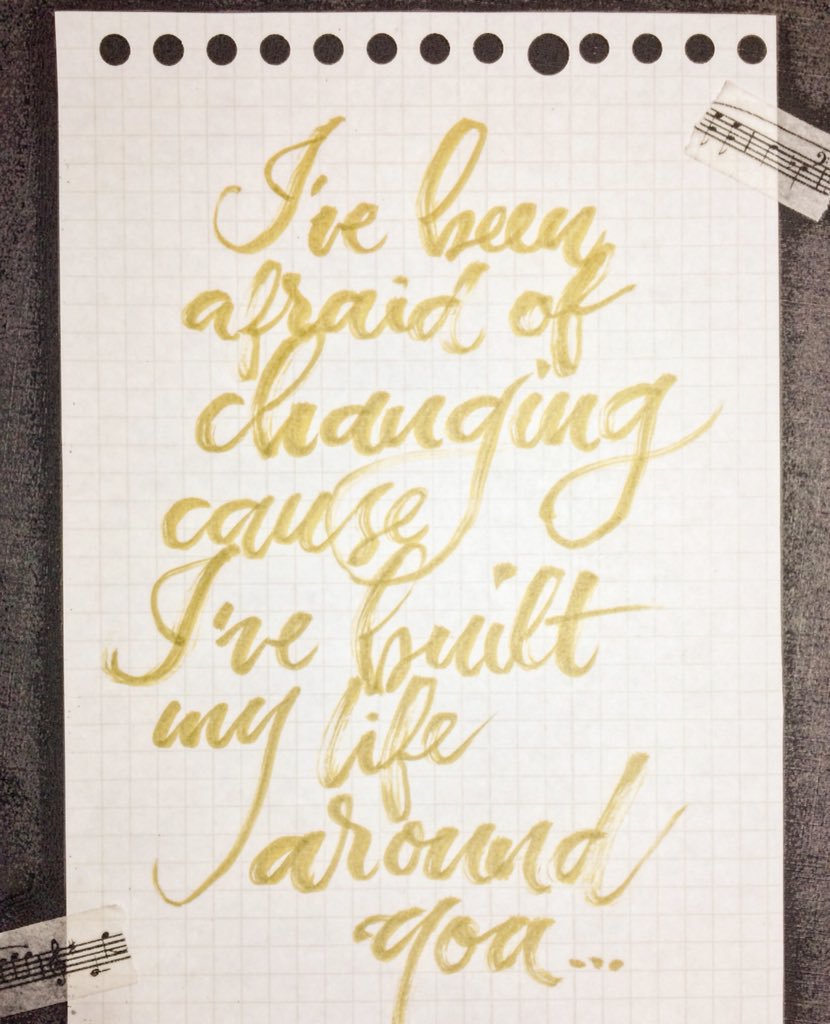 I've been
afraid of
changing
cause
I've built
my life
around
you...